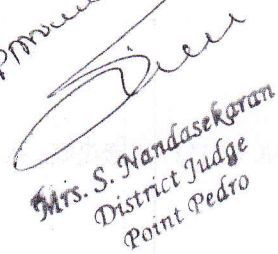 Mrs. S. Nandasekaran
District Judge
Point Pedro